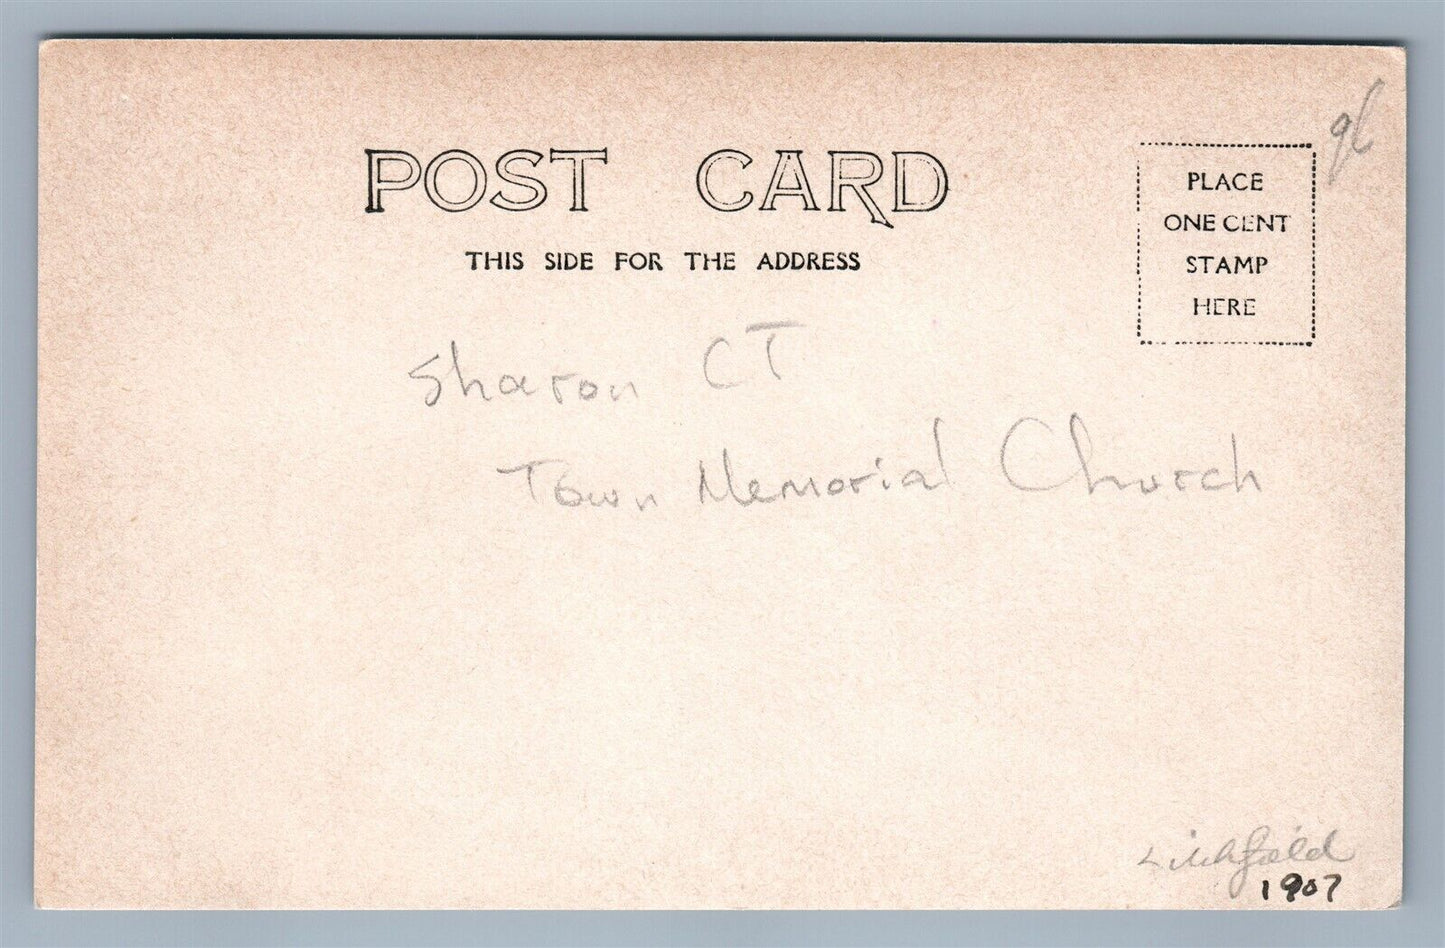 POST CARD
THIS SIDE FOR THE ADDRESS
PLACE
ONE CENT
STAMP
HERE
Sharon CT
Town Memorial Church
Litchfield
1907